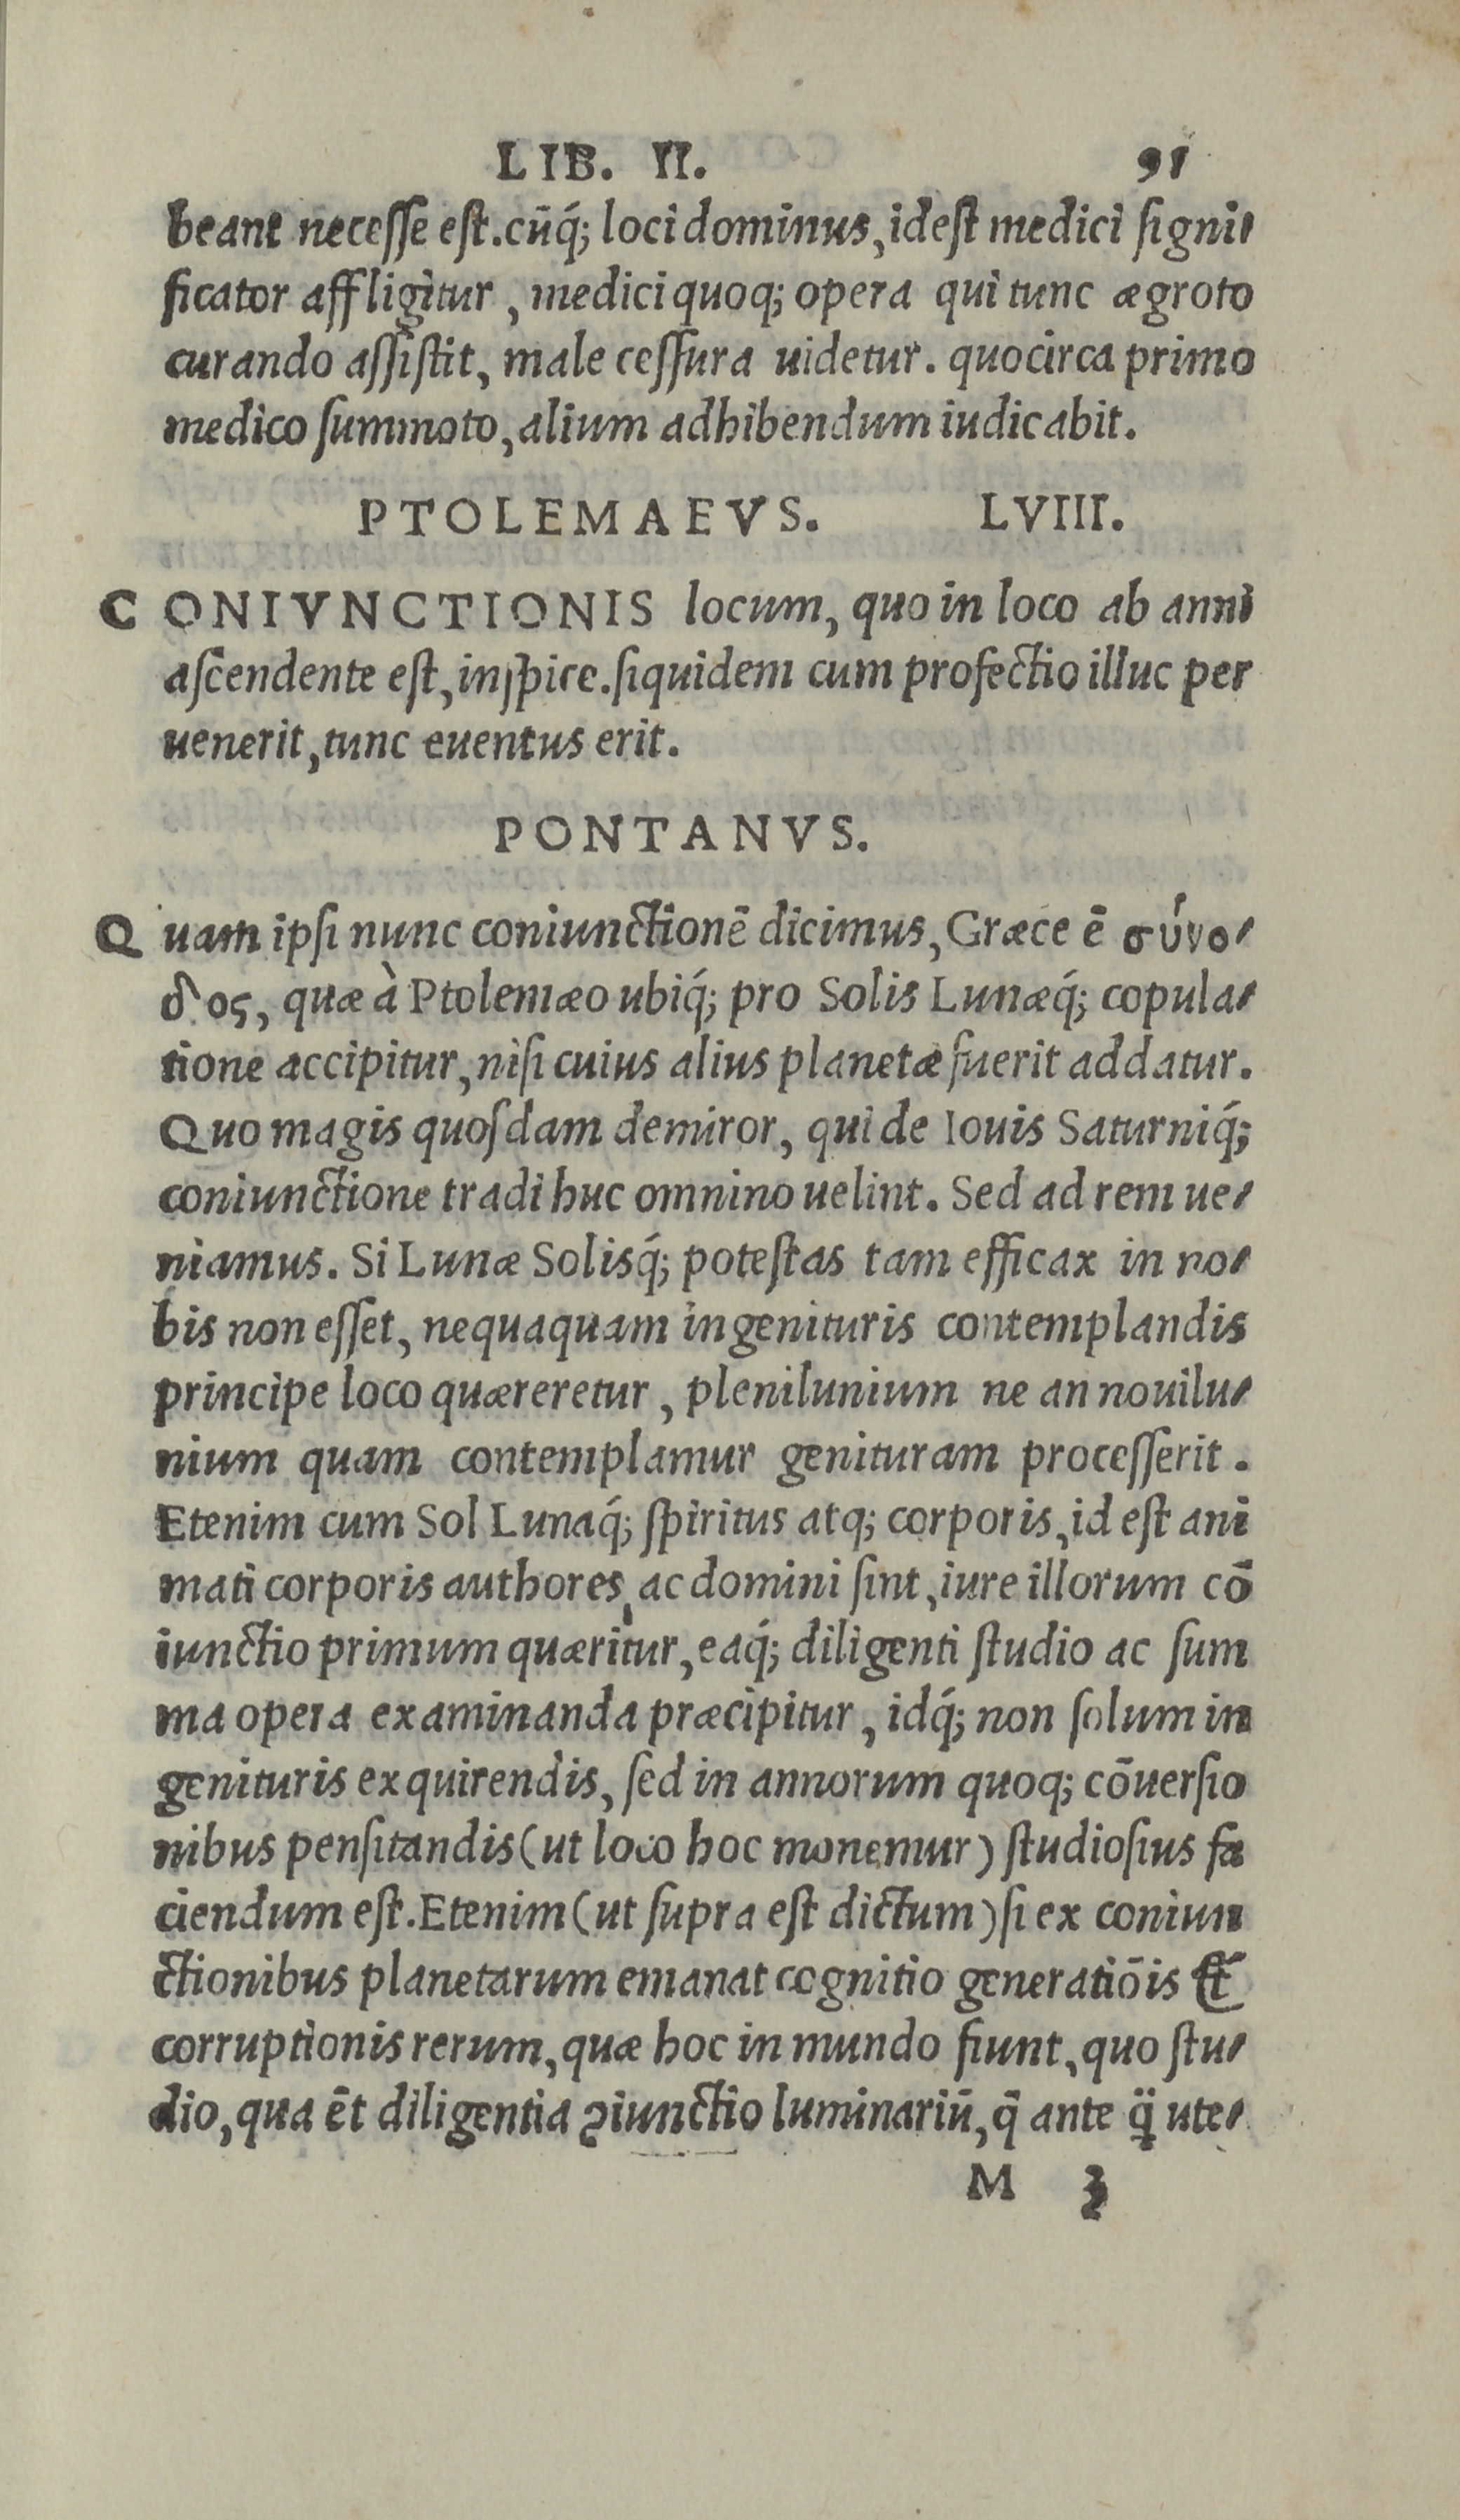 LIB. II. 91
beant necesse est. cūq́; loci dominus, idest medici signi-
ficator affligitur, medici quoq; opera qui tunc ægroto
curando assistit, male cessura uidetur. quocirca primo
medico summoto, alium adhibendum iudicabit.
PTOLEMAEVS. LVIII.
CONIVNCTIONIS locum, quo in loco ab anni
ascendente est, inspice. siquidem cum profectio illuc per
uenerit, tunc euentus erit.
PONTANVS.
Quam ipsi nunc coniunctionē dicimus, Græce ē σύνο-
δος, quæ à Ptolemæo ubiq́; pro Solis Lunæq́; copula-
tione accipitur, nisi cuius alius planetæ fuerit addatur.
Quo magis quosdam demiror, qui de Iouis Saturniq́;
coniunctione tradi huc omnino uelint. Sed ad rem ue-
niamus. Si Lunæ Solisq́; potestas tam efficax in no-
bis non esset, nequaquam in genituris contemplandis
principe loco quæreretur, plenilunium ne an nouilu-
nium quam contemplamur genituram processerit.
Etenim cum Sol Lunaq́; spiritus atq; corporis, id est ani
mati corporis authores, ac domini sint, iure illorum cō
iunctio primum quæritur, eaq́; diligenti studio ac sum
ma opera examinanda præcipitur, idq́; non solum in
genituris exquirendis, sed in annorum quoq; cōuersio
nibus pensitandis (ut loco hoc monemur) studiosius fa
ciendum est. Etenim (ut supra est dictum) si ex coniun
ctionibus planetarum emanat cognitio generatiōis &
corruptionis rerum, quæ hoc in mundo fiunt, quo stu-
dio, qua ēt diligentia ꝯiunctio luminariū, q̄ ante q̈ ute-
M 3